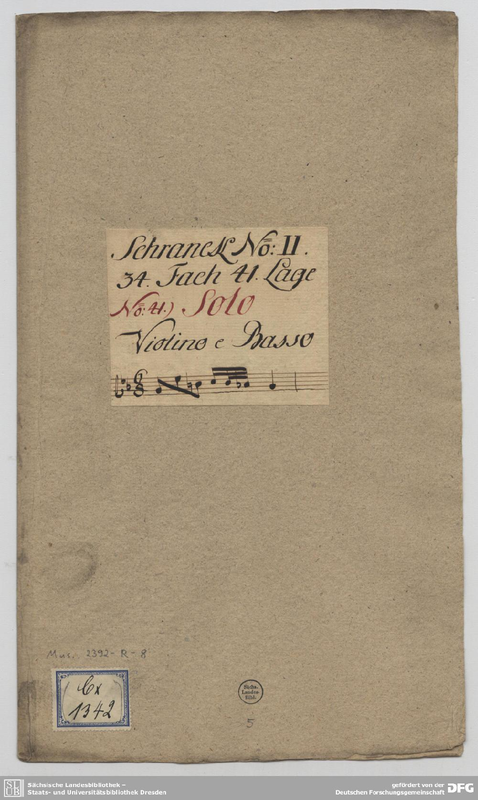 Schranck No: II.
34. Fach 41. Lage
No: 41.) Solo
Violino e Basso
Mus. 2392-R-8
Cx
1342
Sächs.
Landes
Bibl.
5
SLUB
Sächsische Landesbibliothek –
Staats- und Universitätsbibliothek Dresden
gefördert von der
Deutschen Forschungsgemeinschaft
DFG